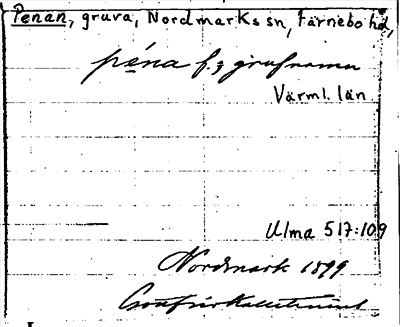 Penan, gruva, Nordmarks sn, Färnebo hd,
péna f. z grufnamn
Värml. län.
Ulma 517:109
Nordmark 1899